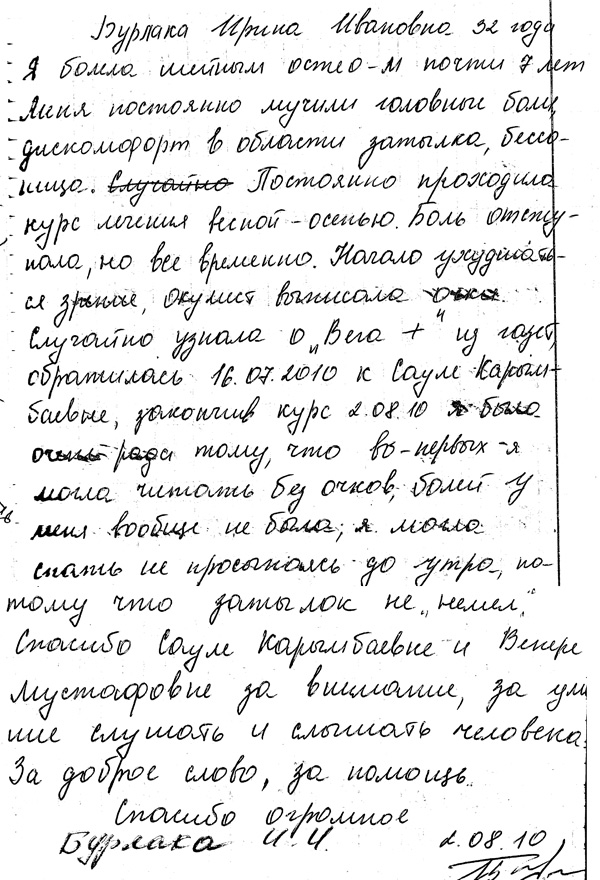 Бурлака Ирина Ивановна 32 года
Я болела шейным остео-м почти 7 лет
Меня постоянно мучили головные боли,
дискомфорт в области затылка, бессо-
ница. Случайно Постоянно проходила
курс лечения весной-осенью. Боль отсту-
пала, но все временно. Начало ухудшать-
ся зрение, окулист выписала очки.
Случайно узнала о „Вега +" из газет,
обратилась 16.07.2010 к Сауле Карым-
баевне, закончив курс 2.08.10 я была
очень рада тому, что во-первых-я
могла читать без очков, болей у
меня вообще не было, я могла
спать не просыпаясь до утра, по-
тому что затылок не „немел."
Спасибо Сауле Карымбаевне и Венере
Мустафовне за внимание, за уме
ние слушать и слышать человека.
За доброе слово, за помощь.
Спасибо огромное
Бурлака И.И. 2.08.10